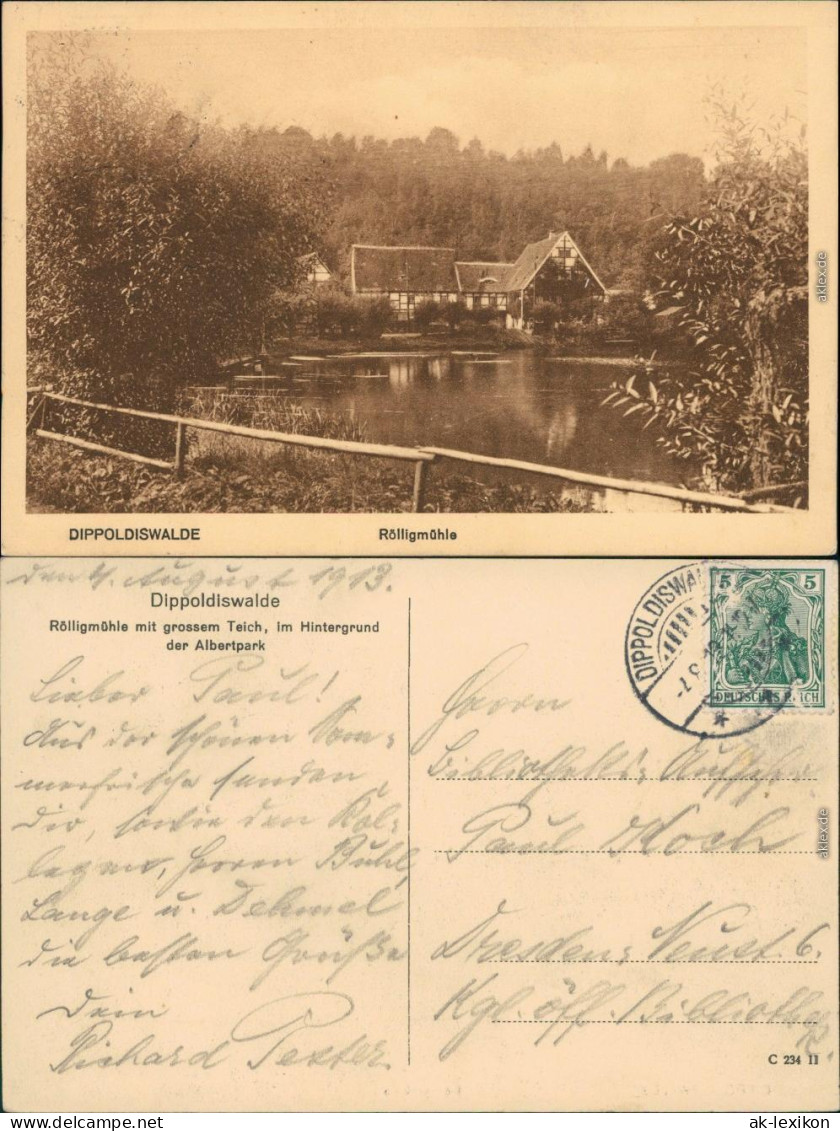 DIPPOLDISWALDE
Rölligmühle
aklex.de
den 4. August 1913.
Dippoldiswalde
Rölligmühle mit grossem Teich, im Hintergrund
der Albertpark
Lieber Paul!
Aus der schönen Som-
merfrische senden
Dir, sowie den Kol-
legen, Herren Buhl,
Lange u. Dehmel
die besten Grüße
Dein
Richard
DIPPOLDISWAL
5 5
DEUTSCHES REICH
Herrn
Bibliotheks-
Paul Koch
Dresden-Neust. 6.
Kgl. öff. Bibliothek
C 234 II
aklex.de
www.ansichtskarten-lexikon.de
ak-lexikon